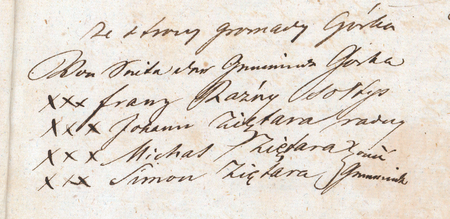 ze strony gromady Górka
Von Seite der Gemeinde Górka
xxx franz Raźny sołtys
xxx Johann Ziętara radny
xxx Michał Ziętara
xxx Simon Ziętara